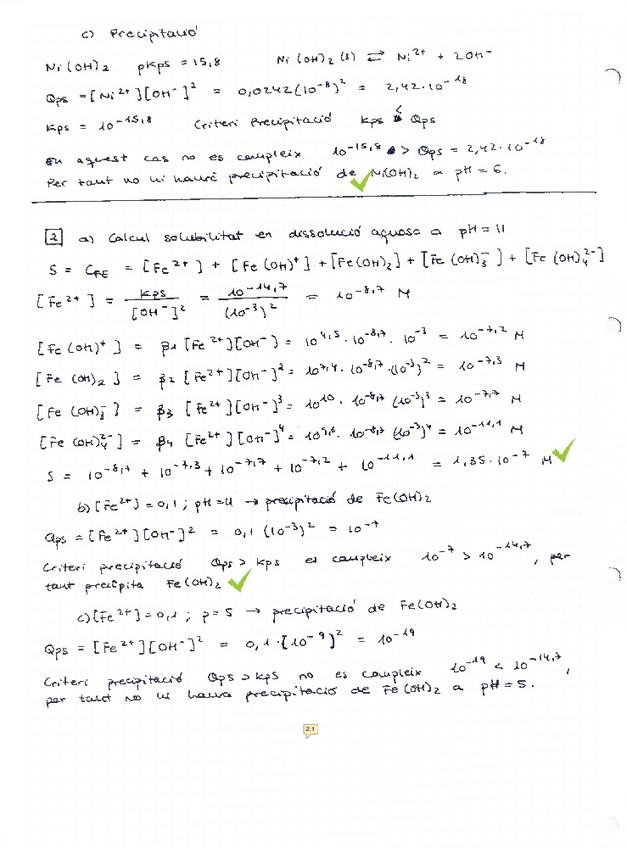 c) Precipitació
Ni(OH)₂ pKps = 15,8 Ni(OH)₂(s) ⇄ Ni²⁺ + 2OH⁻
Qps = [Ni²⁺][OH⁻]² = 0,0242(10⁻⁸)² = 2,42·10⁻¹⁸
Kps = 10⁻¹⁵,⁸ Criteri Precipitació Kps < Qps
En aquest cas no es compleix 10⁻¹⁵,⁸ > Qps = 2,42·10⁻¹⁸
Per tant no hi haurà precipitació de Ni(OH)₂ a pH = 6.
2 a) Càlcul solubilitat en dissolució aquosa a pH = 11
S = C_FE = [Fe²⁺] + [Fe(OH)⁺] + [Fe(OH)₂] + [Fe(OH)₃⁻] + [Fe(OH)₄²⁻]
[Fe²⁺] = Kps / [OH⁻]² = 10⁻¹⁴,⁷ / (10⁻³)² = 10⁻⁸,⁷ M
[Fe(OH)⁺] = β₁ [Fe²⁺][OH⁻] = 10⁴,⁵ · 10⁻⁸,⁷ · 10⁻³ = 10⁻⁷,² M
[Fe(OH)₂] = β₂ [Fe²⁺][OH⁻]² = 10⁷,⁴ · 10⁻⁸,⁷ · (10⁻³)² = 10⁻⁷,³ M
[Fe(OH)₃⁻] = β₃ [Fe²⁺][OH⁻]³ = 10¹⁰ · 10⁻⁸,⁷ (10⁻³)³ = 10⁻⁷,⁷ M
[Fe(OH)₄²⁻] = β₄ [Fe²⁺][OH⁻]⁴ = 10⁹,⁶ · 10⁻⁸,⁷ (10⁻³)⁴ = 10⁻¹¹,¹ M
S = 10⁻⁸,⁷ + 10⁻⁷,³ + 10⁻⁷,⁷ + 10⁻⁷,² + 10⁻¹¹,¹ = 1,35·10⁻⁷ M
b) [Fe²⁺] = 0,1 ; pH = 11 → precipitació de Fe(OH)₂
Qps = [Fe²⁺][OH⁻]² = 0,1 (10⁻³)² = 10⁻⁷
Criteri precipitació Qps > Kps es compleix 10⁻⁷ > 10⁻¹⁴,⁷, per
tant precipita Fe(OH)₂
c) [Fe²⁺] = 0,1 ; p = 5 → precipitació de Fe(OH)₂
Qps = [Fe²⁺][OH⁻]² = 0,1·[10⁻⁹)² = 10⁻¹⁹
Criteri precipitació Qps > Kps no es compleix 10⁻¹⁹ < 10⁻¹⁴,⁷,
per tant no hi haurà precipitació de Fe(OH)₂ a pH = 5.
2,1